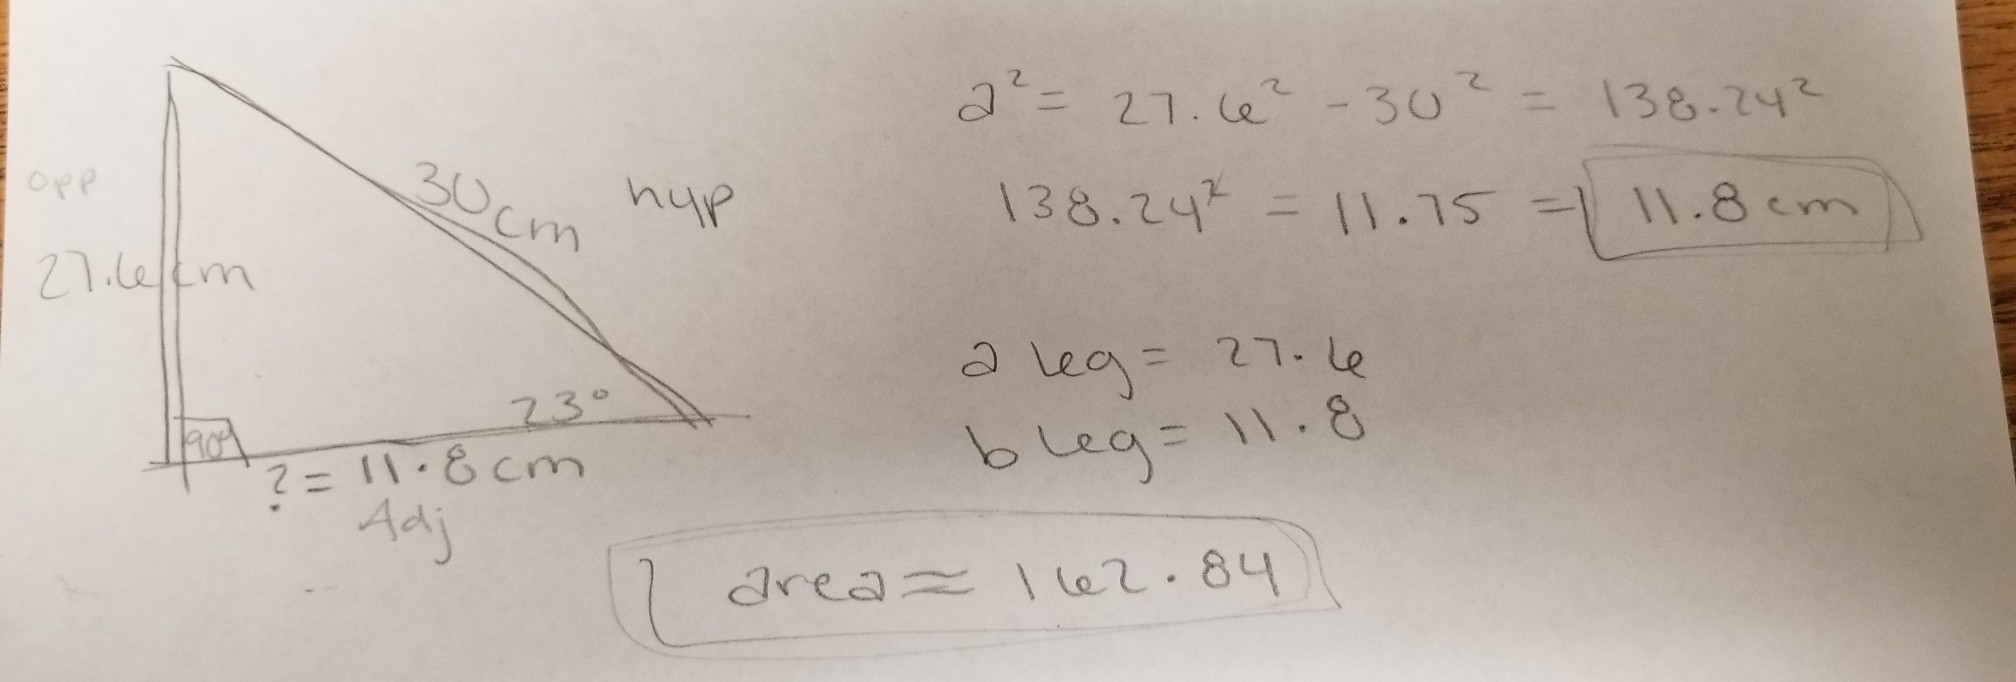 opp
27.6cm
30cm
hyp
23°
90°
?= 11.8cm
Adj
a² = 27.6² - 30² = 138.24²
138.24² = 11.75 = 11.8cm
a leg = 27.6
b leg = 11.8
area ≈ 162.84